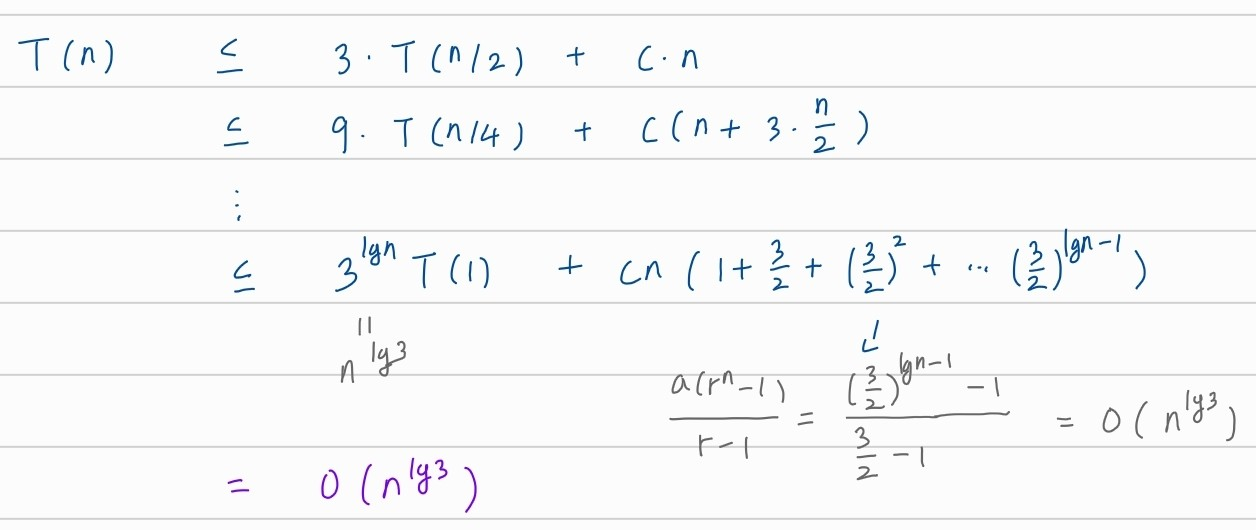 T(n) ≤ 3 · T(n/2) + c · n
≤ 9 · T(n/4) + c(n + 3 · n/2)
⋮
≤ 3^{lgn} T(1) + cn (1 + 3/2 + (3/2)^2 + ... (3/2)^{lgn-1})
|| ↙
n^{lg3} a(r^n - 1)/(r - 1) = ((3/2)^{lgn-1} - 1)/(3/2 - 1) = O(n^{lg3})
= O(n^{lg3})